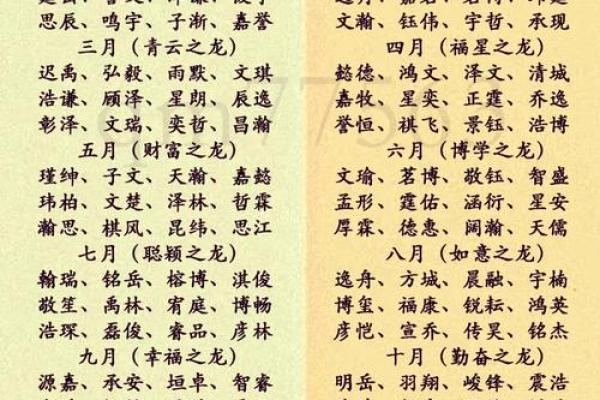 思辰、鸣宇、子渐、嘉誉
三月（青云之龙）
迟禹、弘毅、雨默、文琪
浩谦、顾泽、星朗、辰逸
彰泽、文瑞、奕哲、昌瀚
五月（财富之龙）
瑾绅、子文、天瀚、嘉懿
玮柏、文楚、泽林、哲霖
瀚思、棋风、昆纬、思江
七月（聪颖之龙）
翰瑞、铭岳、榕博、淇俊
敬笙、禹林、宥庭、博畅
浩琛、磊俊、睿品、彦林
九月（幸福之龙）
源嘉、承安、垣卓、智睿
文瀚、钰伟、宇哲、承现
四月（福星之龙）
懿德、鸿文、泽文、清城
嘉牧、星奕、正霆、乔逸
誉恒、祺飞、景钰、浩博
六月（博学之龙）
文瑜、茗博、敬钰、智盛
孟彤、霆佑、涵衍、星安
厚霖、德惠、阔瀚、天儒
八月（如意之龙）
逸舟、方城、晨融、宇楠
博玺、福康、锐耘、鸿英
彦恺、宣乔、传昊、铭杰
十月（勤奋之龙）
明岳、羽翔、峻锋、震浩